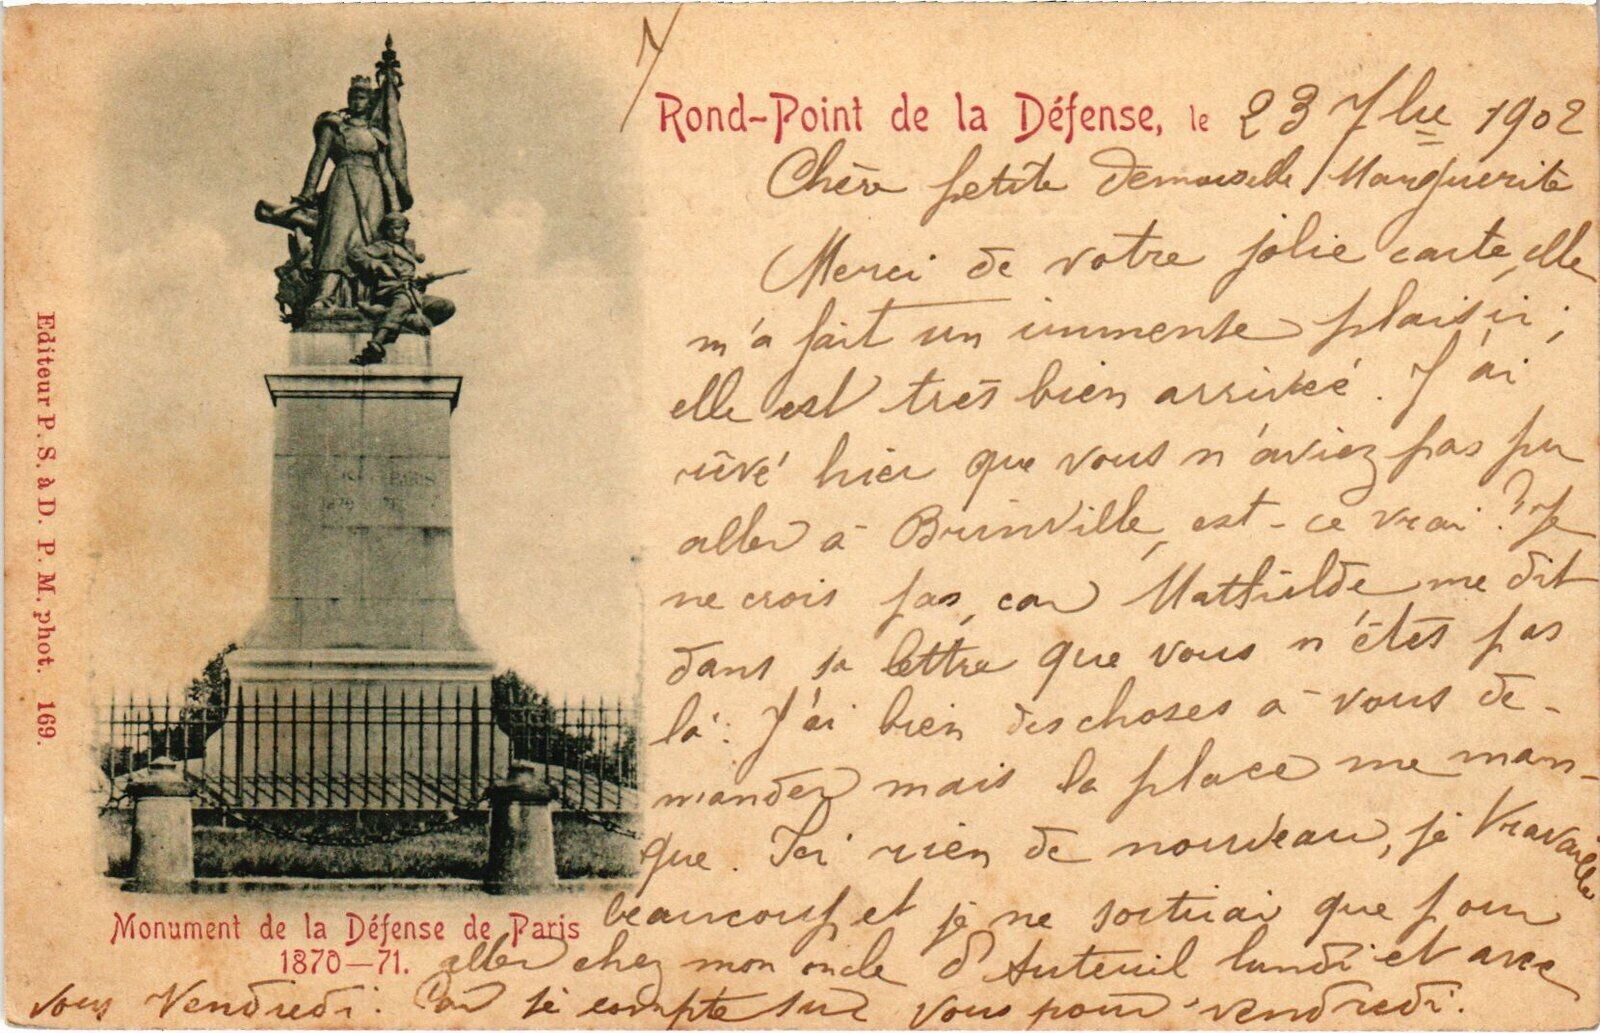 Rond-Point de la Défense, le 23 7bre 1902
Chère petite demoiselle Marguerite
Merci de votre jolie carte, elle
m'a fait un immense plaisir ;
elle est très bien arrivée. J'ai
rêvé hier que vous n'aviez pas pu
aller à Brinville, est-ce vrai ? Je
ne crois pas, car Mathilde me dit
dans sa lettre que vous n'étes pas
là. J'ai bien des choses à vous de-
mander mais la place me man-
que. Ici rien de nouveau, je travaille
beaucoup et je ne sortirai que pour
aller chez mon oncle d'Auteuil lundi et avec
vous Vendredi. Car je compte sur vous pour vendredi.
Monument de la Défense de Paris
1870-71.
Editeur P. S. à D. P. M. phot. 169.